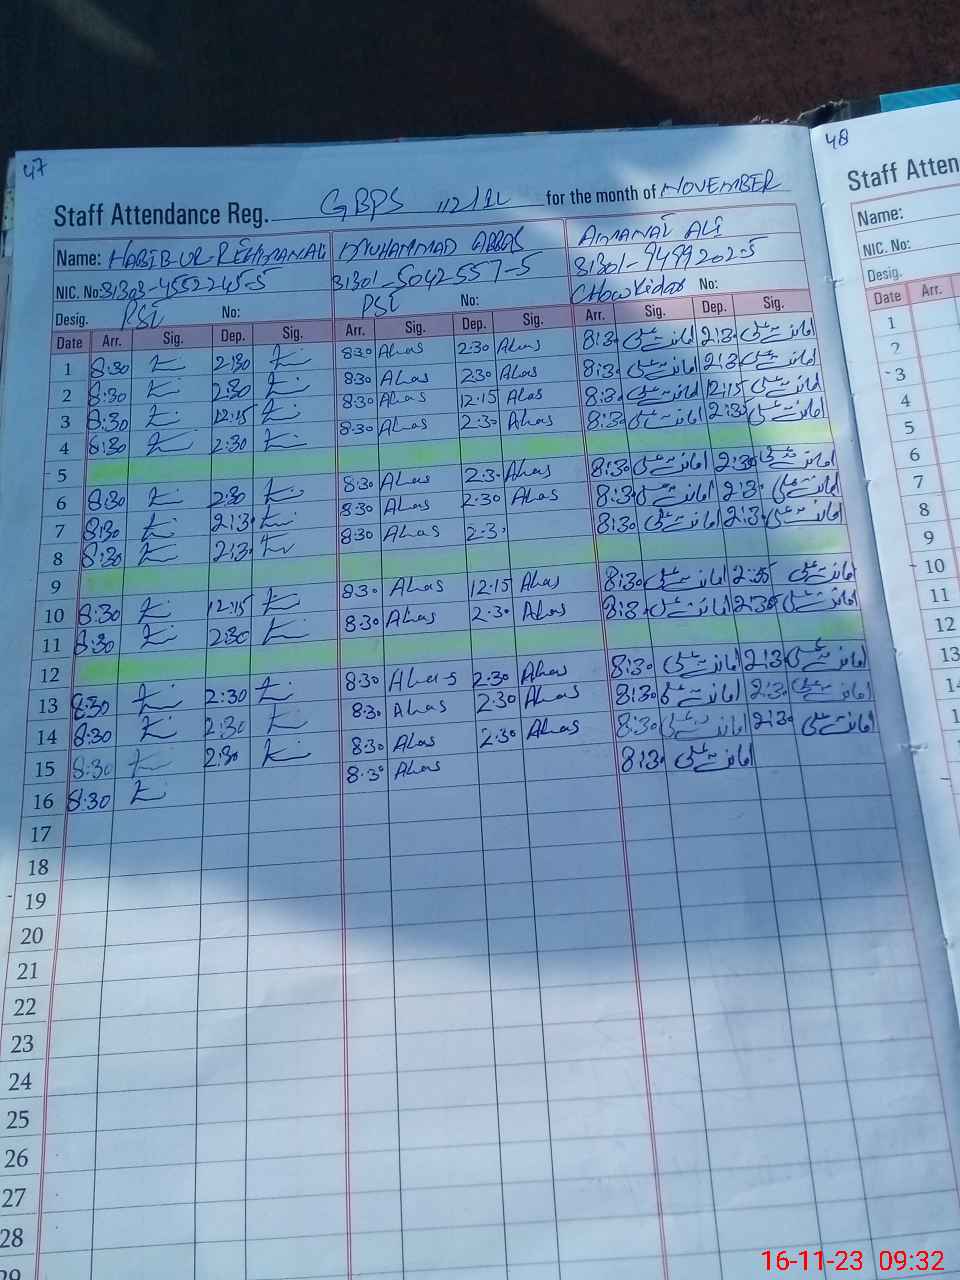 47
48
Staff Attendance Reg. GBPS 112/1L for the month of NOVEMBER
Staff Atten
Name: HABIB UR REHMAN MUHAMMAD ABBAS AMANAT ALI
Name:
NIC. No: 31301-5042557-5
NIC. No:
Desig. PST No: PST No: CHowKidar No:
Desig.
Date Arr. Sig. Dep. Sig. Arr. Sig. Dep. Sig. Arr. Sig. Dep. Sig.
Date Arr.
1 8:30 2:30 8:30 Abas 2:30 Abas 8:30 امانت علی 2:30 امانت علی
2 8:30 2:30 8:30 Abas 2:30 Abas 8:30 امانت علی 2:30 امانت علی
3 8:30 12:15 8:30 Abas 12:15 Abas 8:30 امانت علی 12:15 امانت علی
4 8:30 2:30 8:30 Abas 2:30 Abas 8:30 امانت علی 2:30 امانت علی
5
6 8:30 2:30 8:30 Abas 2:30 Abas 8:30 امانت علی 2:30 امانت علی
7 8:30 2:30 8:30 Abas 2:30 Abas 8:30 امانت علی 2:30 امانت علی
8 8:30 2:30 8:30 Abas 2:30 8:30 امانت علی 2:30 امانت علی
9
10 8:30 12:15 8:30 Abas 12:15 Abas 8:30 امانت علی امانت علی
11 8:30 2:30 8:30 Abas 2:30 Abas 8:30 امانت علی 2:30 امانت علی
12
13 8:30 2:30 8:30 Abas 2:30 Abas 8:30 امانت علی 2:30 امانت علی
14 8:30 2:30 8:30 Abas 2:30 Abas 8:30 امانت علی 2:30 امانت علی
15 8:30 2:30 8:30 Abas 2:30 Abas 8:30 امانت علی 2:30 امانت علی
16 8:30 8:30 Abas 8:30 امانت علی
17
18
19
20
21
22
23
24
25
26
27
28
29
1
2
3
4
5
6
7
8
9
10
11
12
13
16-11-23 09:32